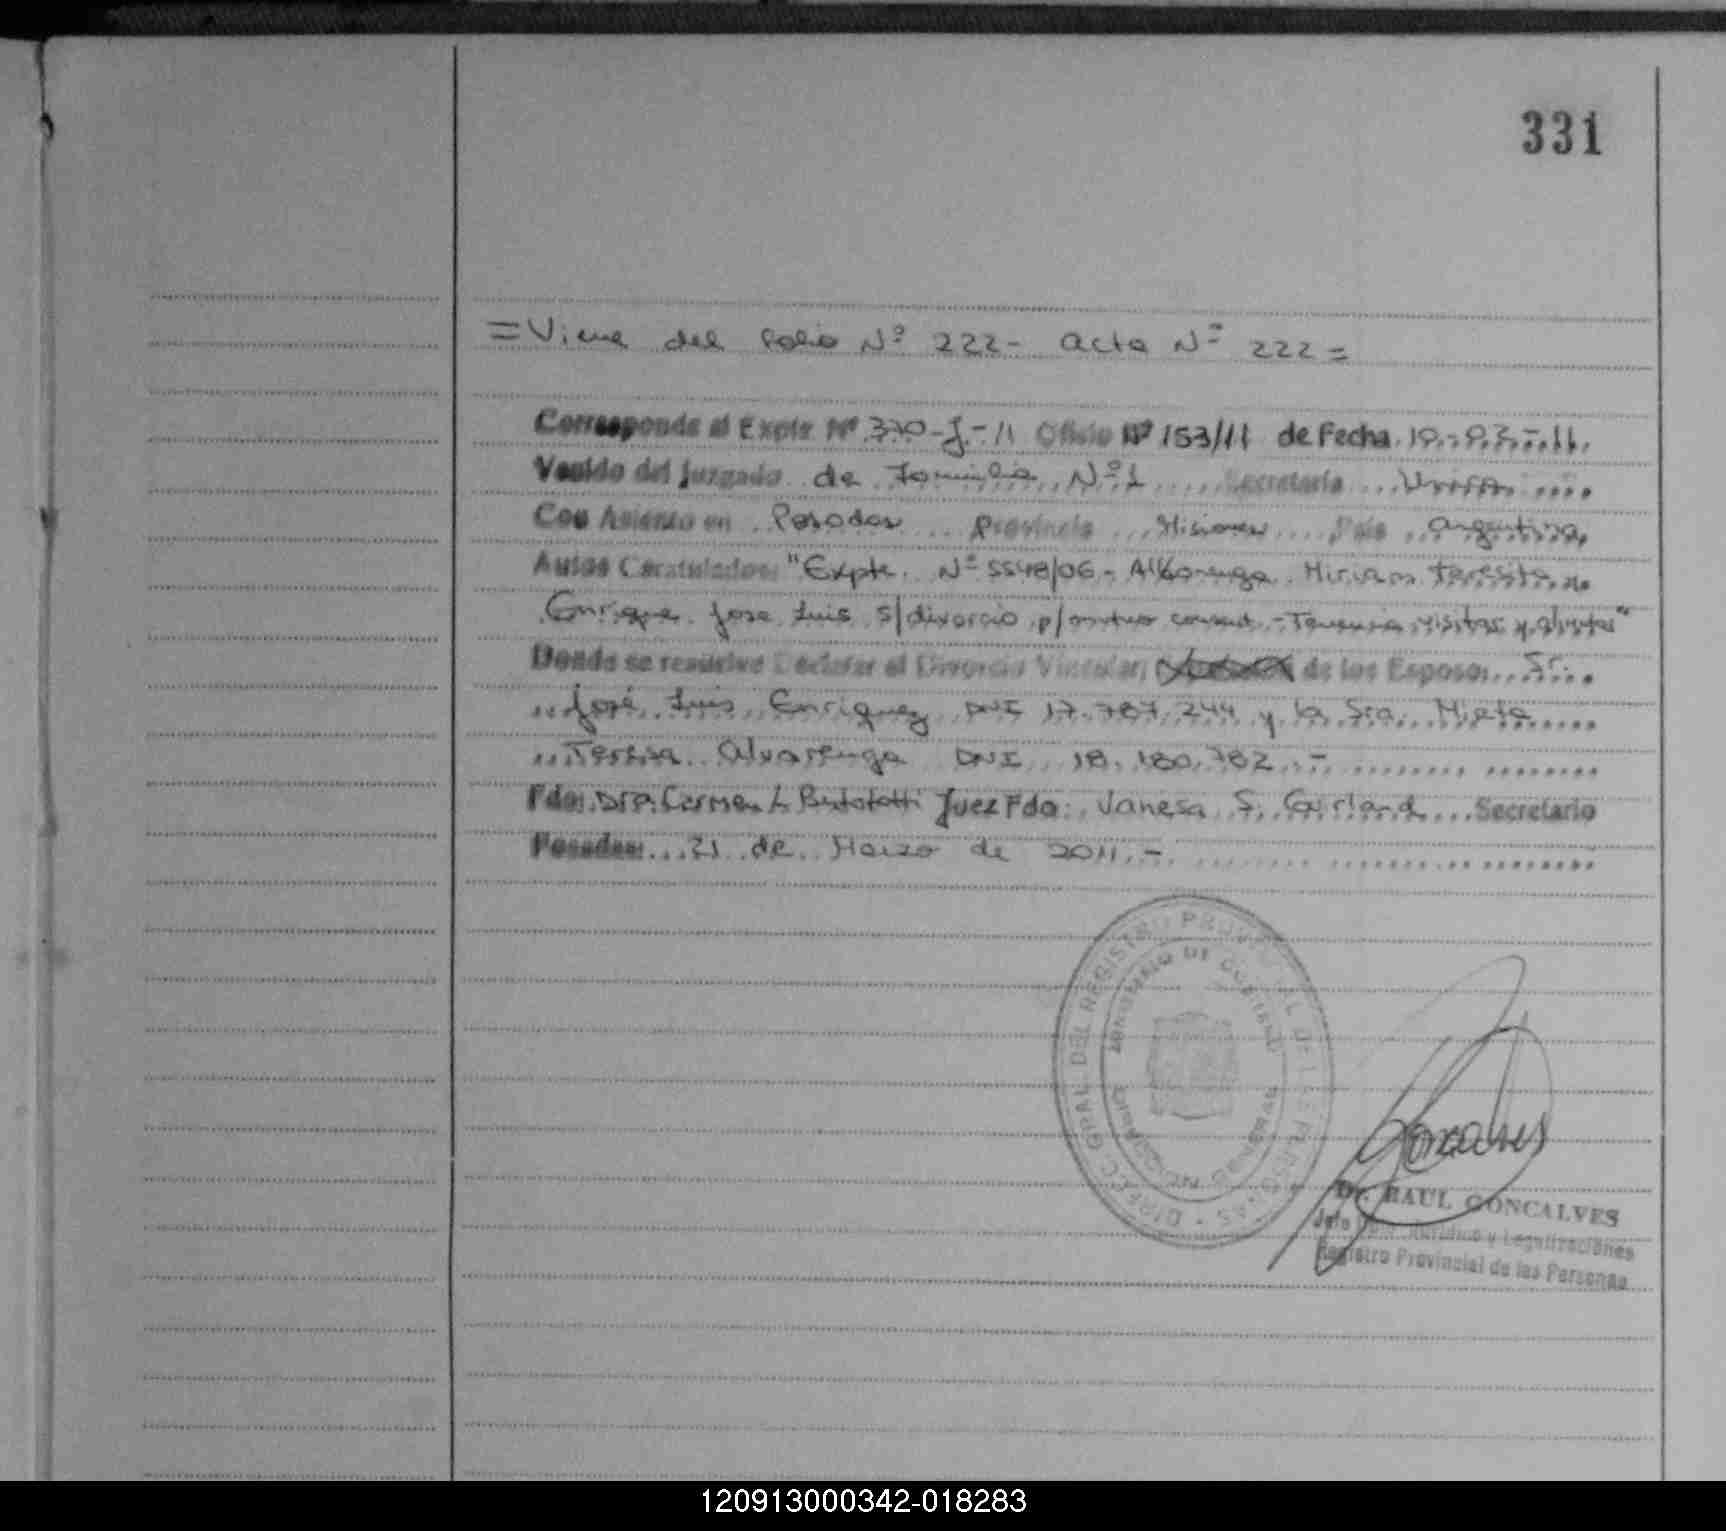 331
= Viene del folio Nº 222 - acta Nº 222 =
Corresponde al Expte Nº 370-J-11 Oficio Nº 153/11 de Fecha 10-03-11.
Venido del Juzgado de Familia Nº 1 Secretaria Unica
Con Asiento en Posadas Provincia Misiones País Argentina
Autos Caratulados: "Expte. Nº 5548/06 - Alborenga Miriam Teresita
Enrique Jose Luis s/divorcio p/mutuo consent. - Tenencia, visitas y
Donde se resuelve Declarar el Divorcio Vincular, de los Esposo: Sr.
José Luis Enriquez DNI 17.787.244 y la Sra. Mirta
Teresa Alvarenga DNI 18.180.782.-
Fdo: Dra. Carmen L. Bertolotti Juez Fdo: Vanesa S. Gurland Secretario
Posadas: 21 de Marzo de 2011.-
DIREC. GRAL. DEL REGISTRO PROVINCIAL DE LAS PERSONAS
MINISTERIO DE GOBIERNO
Goncalves
Dr. RAUL GONCALVES
Jefe Dpto. Jurídico y Legalizaciones
Registro Provincial de las Personas
120913000342-018283